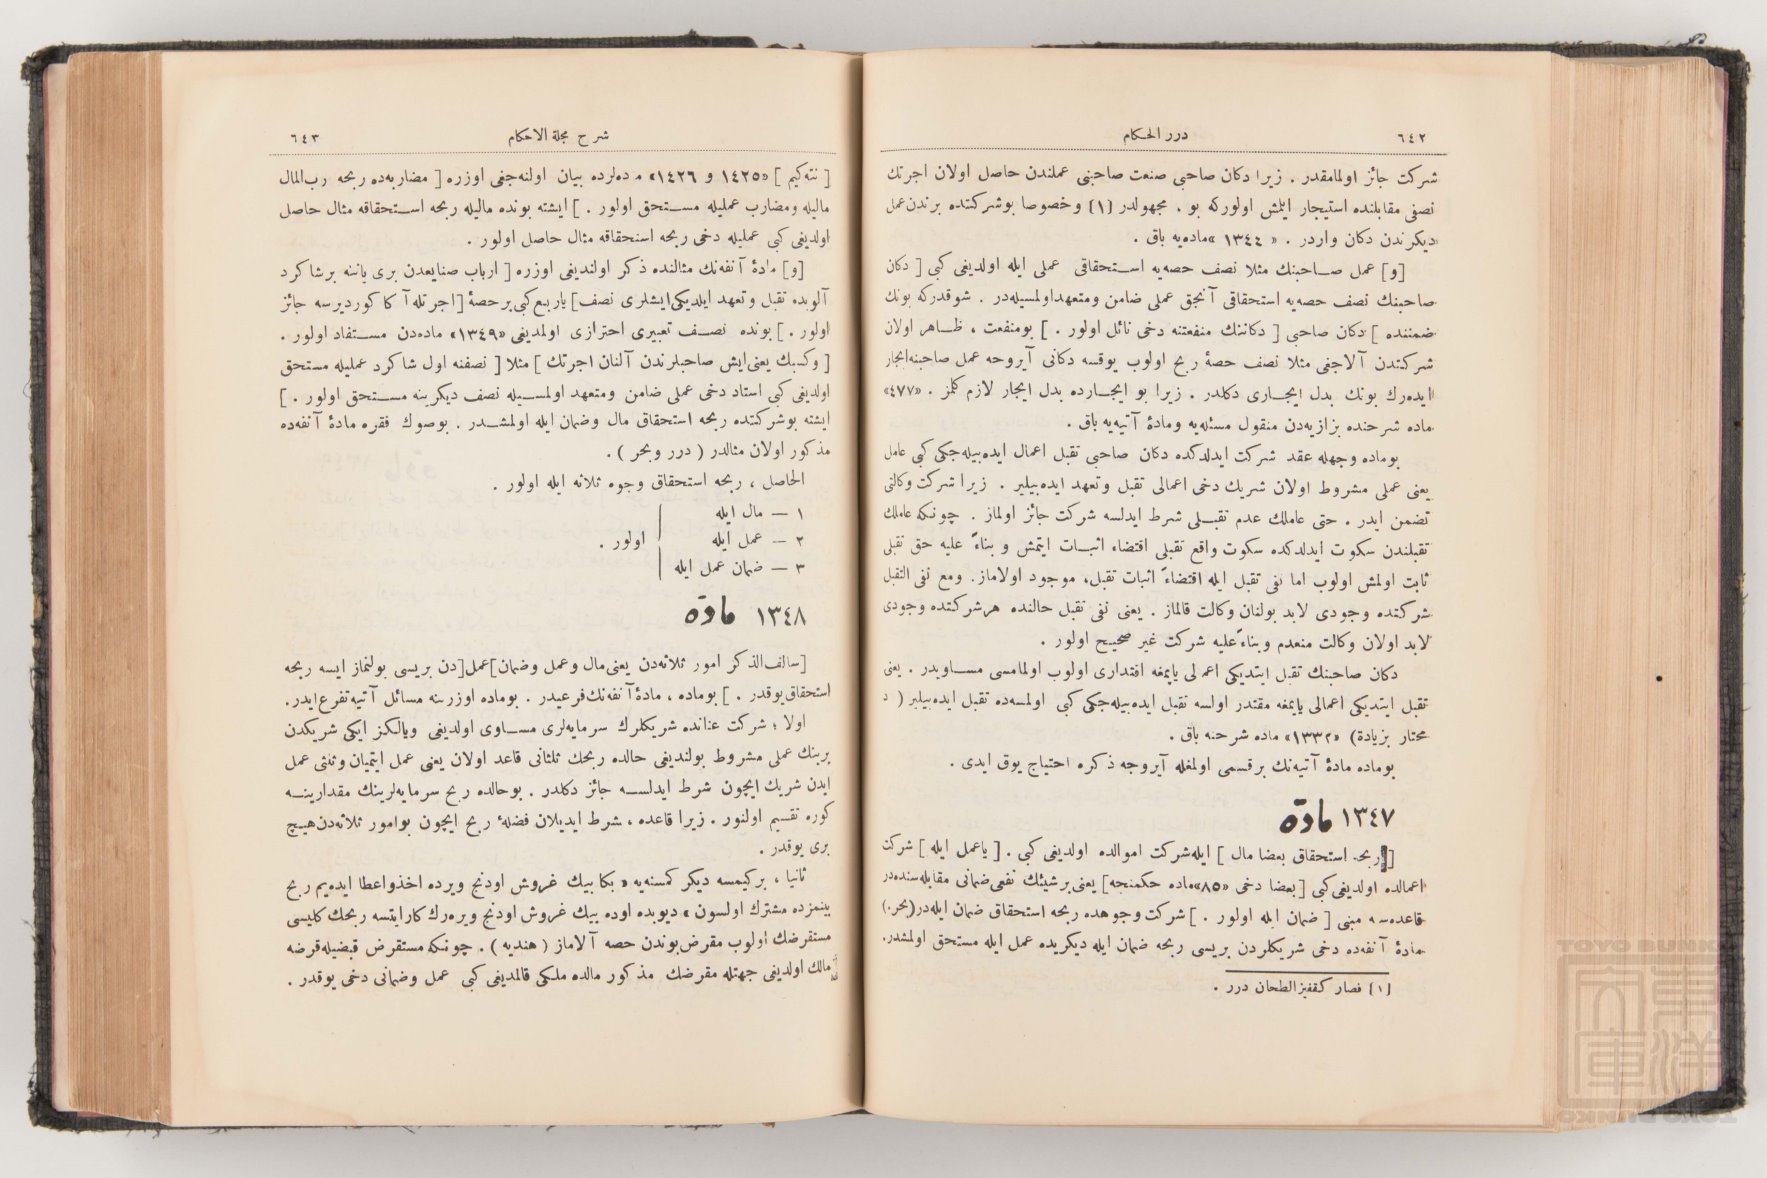 ٦٤٢
درر الحكام
شركت جائز اولمامقدر . زيرا دكان صاحبى صنعت صاحبنى عملندن حاصل اولان اجرتك
نصفى مقابلنده استيجار ايلمش اولوركه بو ، مجهولدر [١] وخصوصا بوشركتده برندن عمل
ديكرندن دكان واردر . « ١٣٤٤ »ماده‌يه باق .
[و] عمل صاحبنك مثلا نصف حصه‌يه استحقاقى عملى ايله اولديغى كبى [ دكان
صاحبنك نصف حصه‌يه استحقاقى آنجق عملى ضامن ومتعهد اولمسيله‌در . شوقدركه بونك
ضمننده ] دكان صاحبى [ دكاننك منفعتنه دخى نائل اولور . ] بومنفعت ، ظاهر اولان
شركتدن آلاجغى مثلا نصف حصۀ ربح اولوب يوقسه دكانى آيروجه عمل صاحبنه ايجار
ايده‌رك بونك بدل ايجارى دكلدر . زيرا بو ايجارده بدل ايجار لازم كلمز . «٤٧٧»
ماده شرحنده بزازيه‌دن منقول مسئله‌يه ومادۀ آتيه‌يه باق .
بوماده وجهله عقد شركت ايدلدكده دكان صاحبى تقبل اعمال ايده‌بيله‌جكى كبى عامل
يعنى عملى مشروط اولان شريك دخى اعمالى تقبل وتعهد ايده‌بيلير . زيرا شركت وكالتى
تضمن ايدر . حتى عاملك عدم تقبلى شرط ايدلسه شركت جائز اولماز . چونكه عاملك
تقبلندن سكوت ايدلدكده سكوت واقع تقبلى اقتضاء اثبات ايتمش و بناءً عليه حق تقبلى
ثابت اولمش اولوب اما نفى تقبل ايله اقتضاءً اثبات تقبل، موجود اولاماز. ومع نفى التقبل
شركتده وجودى لابد بولنان وكالت قالماز . يعنى نفى تقبل حالنده هر شركتده وجودى
لابد اولان وكالت منعدم وبناءً عليه شركت غير صحيح اولور .
دكان صاحبنك تقبل ايتديكى اعمالى يايمغه اقتدارى اولوب اولمامسى مساويدر . يعنى
تقبل ايتديكى اعمالى يايمغه مقتدر اولسه تقبل ايده‌بيله‌جكى كبى اولمسه‌ده تقبل ايده‌بيلير ( د
محتار بزيادة) «١٣٣٢» ماده شرحنه باق .
بوماده مادۀ آتيه‌نك برقسمى اولمغله آيروجه ذكره احتياج يوق ايدى .
١٣٤٧ مادّه
[ربحه استحقاق بعضا مال ] ايله شركت اموالده اولديغى كبى . [ ياعمل ايله ] شركت
اعمالده اولديغى كبى [بعضا دخى «٨٥»ماده حكمنجه] يعنى برشيئك نفعى ضمانى مقابله‌سنده‌در
قاعده‌سنه مبنى [ ضمان ايله اولور . ] شركت وجوهده ربحه استحقاق ضمان ايله‌در(بحر.)
مادۀ آنفه‌ده دخى شريكلردن بريسى ربحه ضمان ايله ديكريده عمل ايله مستحق اولمشدر.
[١] فصار كقفيز الطحان درر .
شرح مجلة الاحكام
٦٤٣
[ نته‌كيم ] «١٤٢٥ و ١٤٢٦» ماده‌لرده بيان اولنه‌جغى اوزره [ مضاربه‌ده ربحه رب‌المال
ماليله ومضارب عمليله مستحق اولور . ] ايشته بونده ماليله ربحه استحقاقه مثال حاصل
اولديغى كبى عمليله دخى ربحه استحقاقه مثال حاصل اولور .
[و] مادۀ آنفه‌نك مثالنده ذكر اولنديغى اوزره [ ارباب صنايعدن برى ياننه برشاكرد
آلوبده تقبل وتعهد ايلديكى ايشلرى نصف] ياربع كبى برحصۀ [اجرتله آكا كورديرسه جائز
اولور . ] بونده نصف تعبيرى احترازى اولمديغى «١٣٤٩» ماده‌دن مستفاد اولور .
[ وكسبك يعنى ايش صاحبلرندن آلنان اجرتك ] مثلا [ نصفنه اول شاكرد عمليله مستحق
اولديغى كبى استاد دخى عملى ضامن ومتعهد اولمسيله نصف ديكرينه مستحق اولور . ]
ايشته بوشركتده ربحه استحقاق مال وضمان ايله اولمشدر . بوصوك فقره مادۀ آنفه‌ده
مذكور اولان مثالدر ( درر وبحر ) .
الحاصل ، ربحه استحقاق وجوه ثلاثه ايله اولور .
١ — مال ايله
٢ — عمل ايله
اولور .
٣ — ضمان عمل ايله
١٣٤٨ مادّه
[سالف‌الذكر امور ثلاثه‌دن يعنى مال وعمل وضمان]عمل[دن بريسى بولنماز ايسه ربحه
استحقاق يوقدر . ] بوماده ، مادۀ آنفه‌نك فرعيدر . بوماده اوزرينه مسائل آتيه تفرع ايدر.
اولا ؛ شركت عنانده شريكلرك سرمايه‌لرى مساوى اولديغى ويالكز ايكى شريكدن
برينك عملى مشروط بولنديغى حالده ربحك ثلثانى قاعد اولان يعنى عمل ايتميان وثلثى عمل
ايدن شريك ايچون شرط ايدلسه جائز دكلدر . بوحالده ربح سرمايه‌لرينك مقدارينه
كوره تقسيم اولنور . زيرا قاعده ، شرط ايديلان فضلۀ ربح ايچون بوامور ثلاثه‌دن هيچ
برى يوقدر .
ثانيا ، بركيمسه ديكر كمسنه‌يه « بكا بيك غروش اودنج ويرده اخذ واعطا ايده‌يم ربح
بينمزده مشترك اولسون » ديوبده اوده بيك غروش اودنج ويره‌رك كار ايتسه ربحك كليسى
مستقرضك اولوب مقرض بوندن حصه آلاماز ( هنديه ) . چونكه مستقرض قبضيله قرضه
مالك اولديغى جهتله مقرضك مذكور مالده ملكى قالمديغى كبى عمل وضمانى دخى يوقدر .